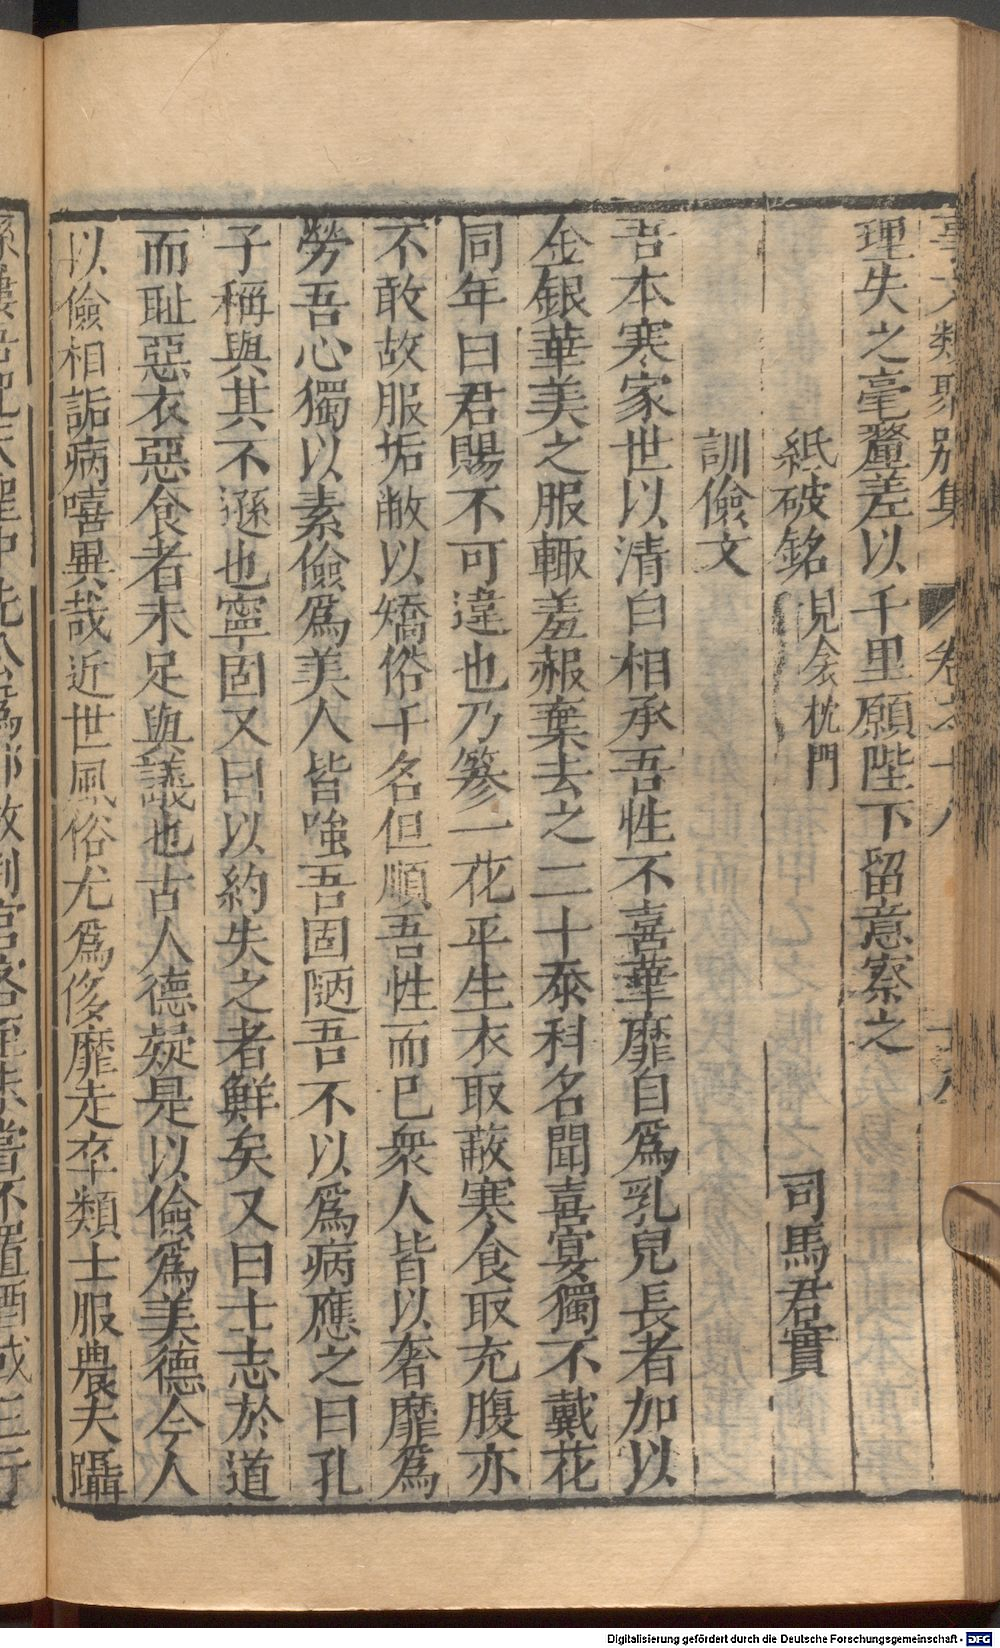 理失之毫釐差以千里願陛下留意察之
紙破銘見衾枕門 司馬君實
訓儉文
吾本寒家世以清白相承吾性不喜華靡自爲乳兒長者加以
金銀華美之服輙羞赧棄去之二十忝科名聞喜宴獨不戴花
同年曰君賜不可違也乃簪一花平生衣取蔽寒食取充腹亦
不敢故服垢敝以矯俗干名但順吾性而已衆人皆以奢靡爲
勞吾心獨以素儉爲美人皆嗤吾固陋吾不以爲病應之曰孔
子稱與其不遜也寧固又曰以約失之者鮮矣又曰士志於道
而耻惡衣惡食者未足與議也古人德疑是以儉爲美德今人
以儉相詬病嘻異哉近世風俗尤爲侈靡走卒類士服農夫躡
Digitalisierung gefördert durch die Deutsche Forschungsgemeinschaft - DFG